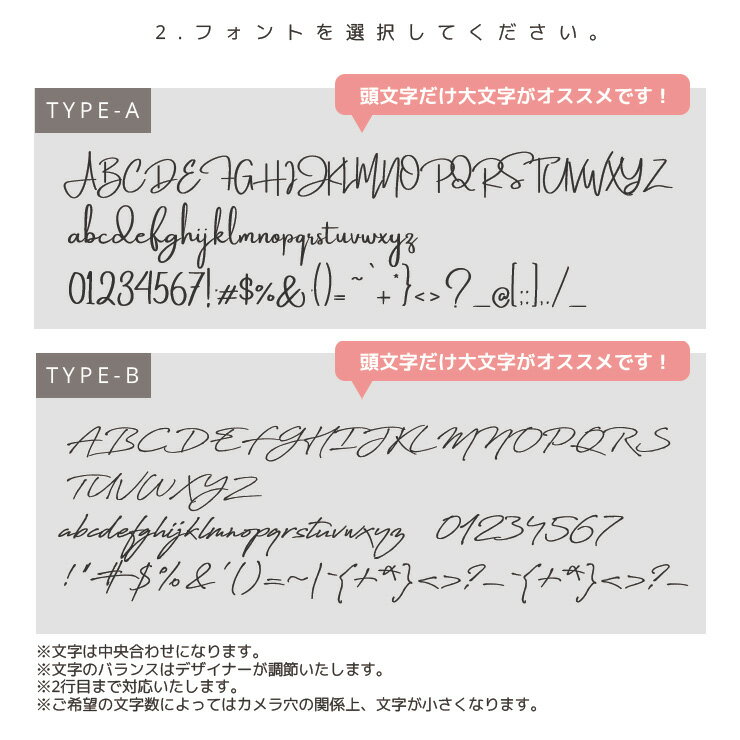 2.フォントを選択してください。
TYPE-A
頭文字だけ大文字がオススメです！
ABCDEFGHIJKLMNOPQRSTUVWXYZ
abcdefghijklmnopqrstuvwxyz
01234567!#$%&()=~`+*}<>?_@[;:],./_
TYPE-B
頭文字だけ大文字がオススメです！
ABCDEFGHIJKLMNOPQRS
TUVWXYZ
abcdefghijklmnopqrstuvwxyz 01234567
!"#$%&'()=~|-{+*}<>?_-{+*}<>?_
※文字は中央合わせになります。
※文字のバランスはデザイナーが調節いたします。
※2行目まで対応いたします。
※ご希望の文字数によってはカメラ穴の関係上、文字が小さくなります。